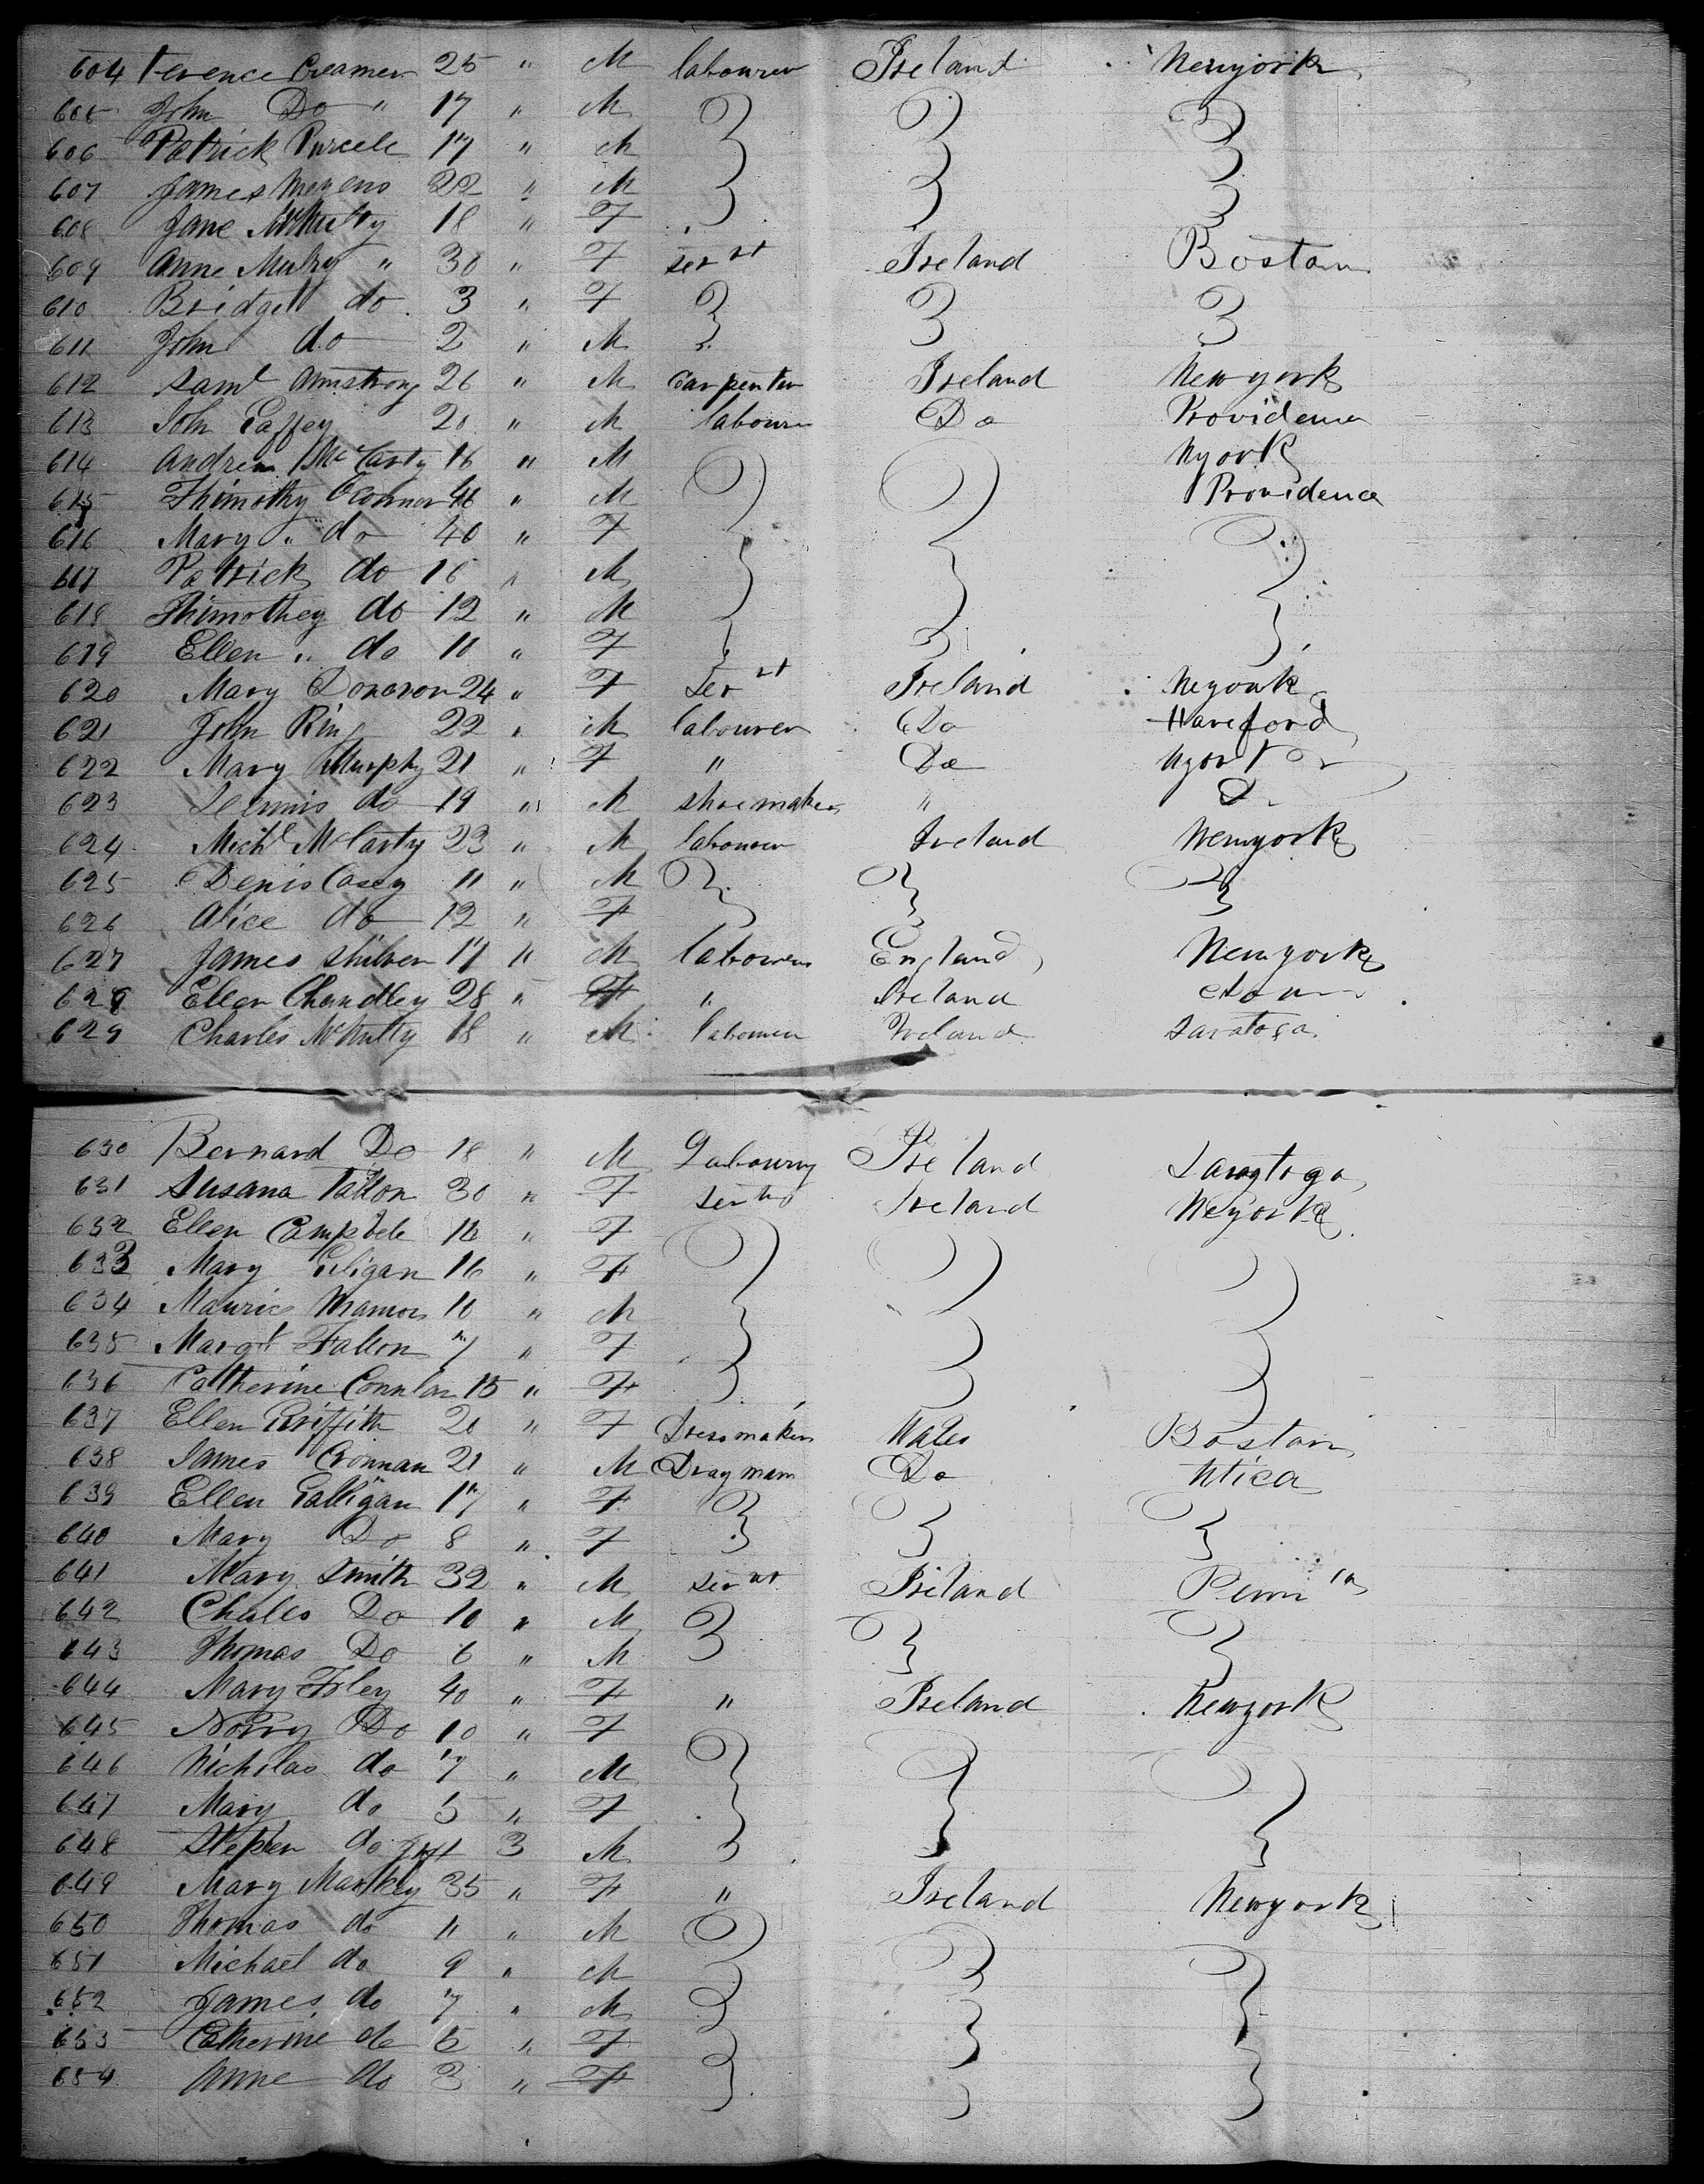 604 Terence Creamer 25 " M labourer Ireland Newyork
605 John Do " 17 " M
606 Patrick Purcele 17 " M
607 James 22 " M
608 Jane McNulty 18 " F
609 Anne Mulry " 30 " F servt Ireland Boston
610 Bridget do 3 " F
611 John do 2 " M
612 Saml Armstrong 26 " M Carpenter Ireland Newyork
613 John Gaffey 20 " M labourer Do Providence
614 Andrew McCarty 16 " M Nyork
615 Thimothy OConnor 46 " M Providence
616 Mary " do 40 " F
617 Patrick do 16 " M
618 Thimothey do 12 " M
619 Ellen " do 10 " F
620 Mary Donovon 24 " F Servt Ireland Neyork
621 John Ring 22 " M labourer Do Hareford
622 Mary Murphy 21 " F " Do Nyork
623 do 19 " M shoemaker " D
624 Michl McCarty 23 " M labourer Ireland Newyork
625 Denis Casey 11 " M
626 Alice do 12 " F
627 James 17 " M labourer England Newyork
628 Ellen Chandley 28 " F " Ireland
629 Charles McNulty 18 " M labourer Ireland Saratoga
630 Bernard Do 18 " M Labourer Ireland Saragtoga
631 Susana Fallon 30 " F Ireland Neyork
632 Ellen Campbele 16 " F
633 Mary Giligan 16 " F
634 Maurice 10 " M
635 Margt Fallon 7 " F
636 Catherine Connlan 15 " F
637 Ellen Griffith 20 " F Dressmaker Wales Boston
638 James Cronnan 21 " M Drayman Do Utica
639 Ellen Galligan 17 " F
640 Mary Do 8 " F
641 Mary Smith 32 " M servt Ireland
642 Chales Do 10 " M
643 Thomas Do 6 " M
644 Mary Foley 40 " F " Ireland Newyork
645 Norry Do 10 " F
646 Nicholas do 7 " M
647 Mary do 5 " F
648 Stephen do Inft 3 M
649 Mary Markey 35 " F " Ireland Newyork
650 Thomas do 11 " M
651 Michael do 9 " M
652 James do 7 " M
653 Catherine do 5 " F
654 Anne do 3 " F